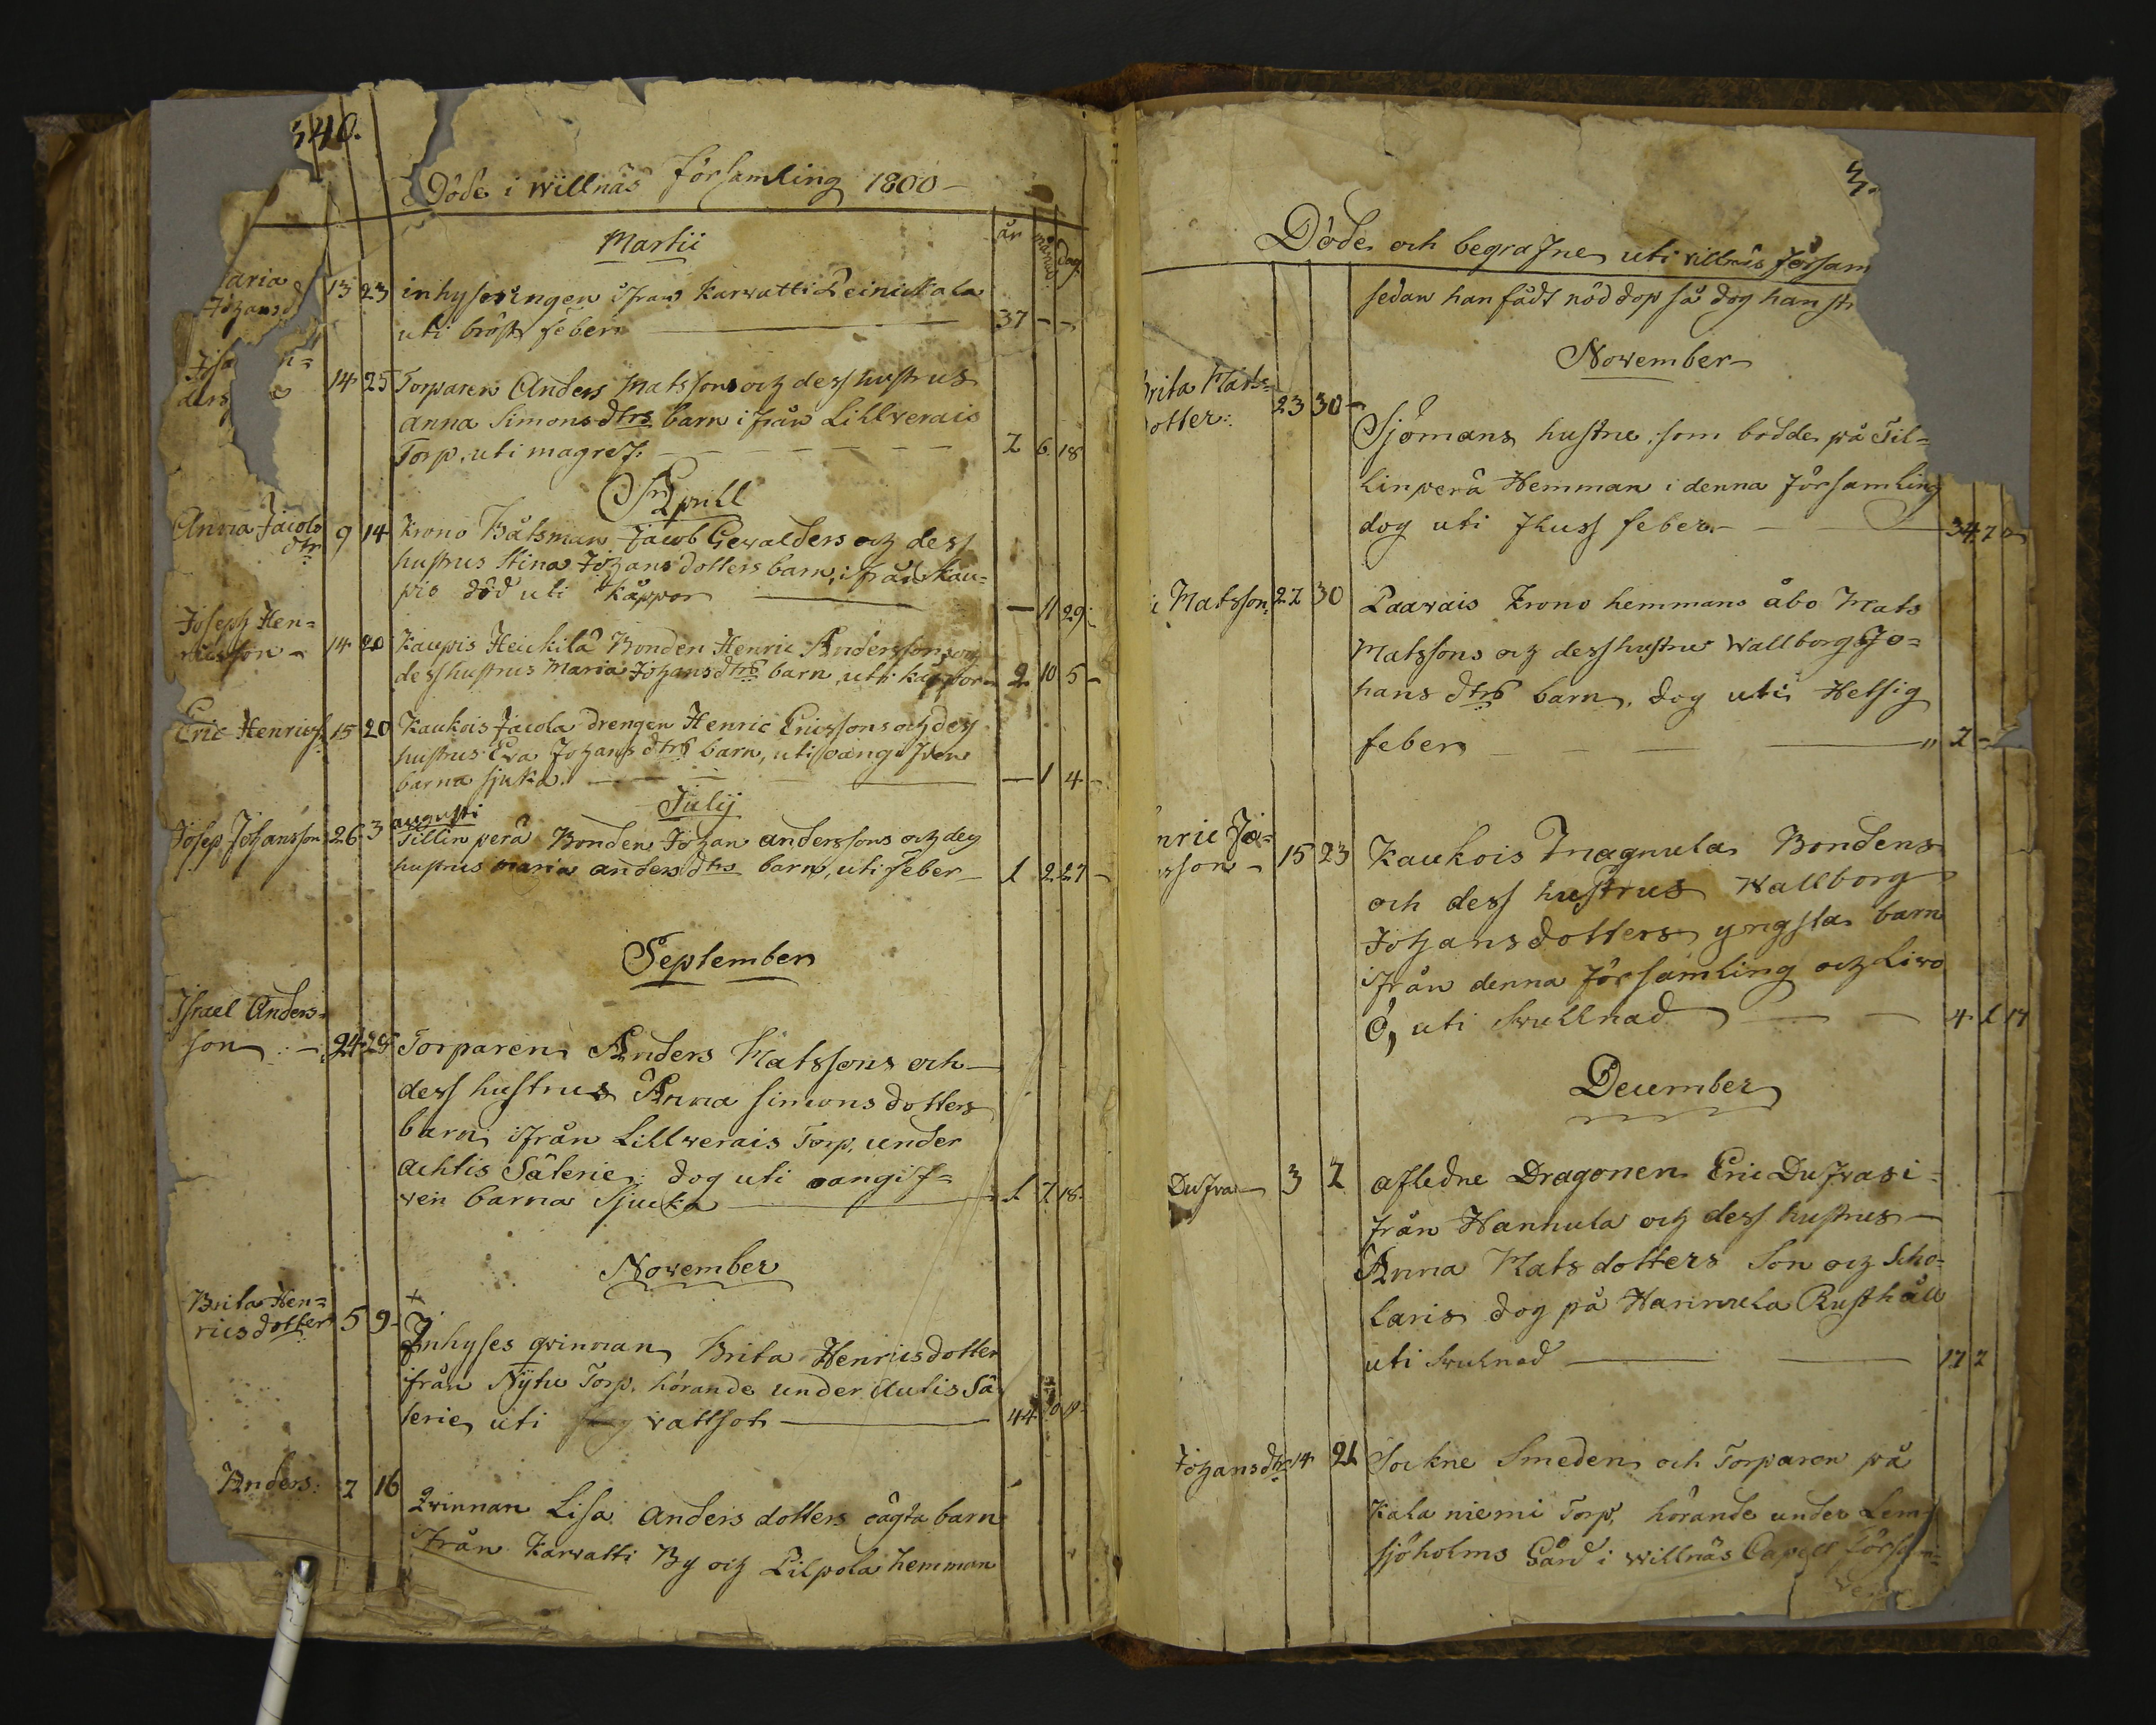 340.
Döde i Willnäs Församling 1800
år månad dag
Martii
aria Johansd 13 23 inhyseringen ifran Karvatti Leinickala
uti bröst feber 37 - -
ders 14 25 Torparen Anders Matssons och dess hustrus
Anna Simons dtrs barn ifrån Lillverais
Torp, uti magref: 2 6 18
Aprill
Anna Jacobs dtr 9 14 Krono Båtsman Jacob Gevalders och dess
hustrus Stina Johansdotters barn, ifrån Kau=
pio död uti Kåppor - 11 29
Joseph Hen=
ricsson 14 20 Kaupis Heickilä Bonden Henric Anderssons och
dess hustrus Maria Johansdtrs barn, uti koppor 2 10 5
Eric Henricss 15 20 Kaukois Jacola drengen Henric Ericssons och des
hustrus Eva Johansdtrs barn, uti oangifven
barna sjuka - 1 4
Julij
Josep Johansson 26 3 augusti
Tillinperä Bonden Johan anderssons och des
hustrus maria anders dtrs barn, uti feber 1 2 27
September
Israel Anders=
son 24 28 Torparen Anders Matssons och
dess hustrus Anna Simons dotters
barn ifrån Lillverais Torp, under
Achtis Säterie, dog uti oangif=
ven barna Sjuka 1 7 18
November
Brita Hen=
ricsdotter 5 9 Inhyses qvinnan Brita Henricsdotter
ifrån Torp, hörande under Autis Sä
terie, uti vattsot 44
Anders: 2 16 Qvinnan Lisa Anders dotters oägta barn
ifrån Karvatti By och Lilpola hemman
3
Döde och begrafne uti villnäs Försam
sedan han fådt nöddop så dog han st
November
Brita Mats=
dotter: 23 30 Sjömans hustru, som bodde på Til=
linperä Hemman i denna Församling
dog uti Fluss feber 34 7
Matsson: 22 30 Laavais Krono hemmans åbo Mats
Matssons och dess hustru Wallborg Jo=
hans dtrs barn, dog uti Hetsig
feber " 2 -
nric Ja=
sson 15 23 Kaukois Magnula Bondens
och dess hustrus Wallborg
Johansdotters yngsta barn
ifrån denna församling och Livo
Ö, uti Svullnad 4 1 17
December
Dufva 3 7 afledne Dragonen Eric Dufvas i=
från Hannula och dess hustrus
Anna Matsdotters Son och Scho=
laris dog på Hannula Rusthåll
uti Svulnad 17 2
Johansdtr 14 21 Sockne Smeden och Torparen på
Kalaniemi Torp, hörande under Lem=
sjöholms Gård i Willnäs Capell församl=